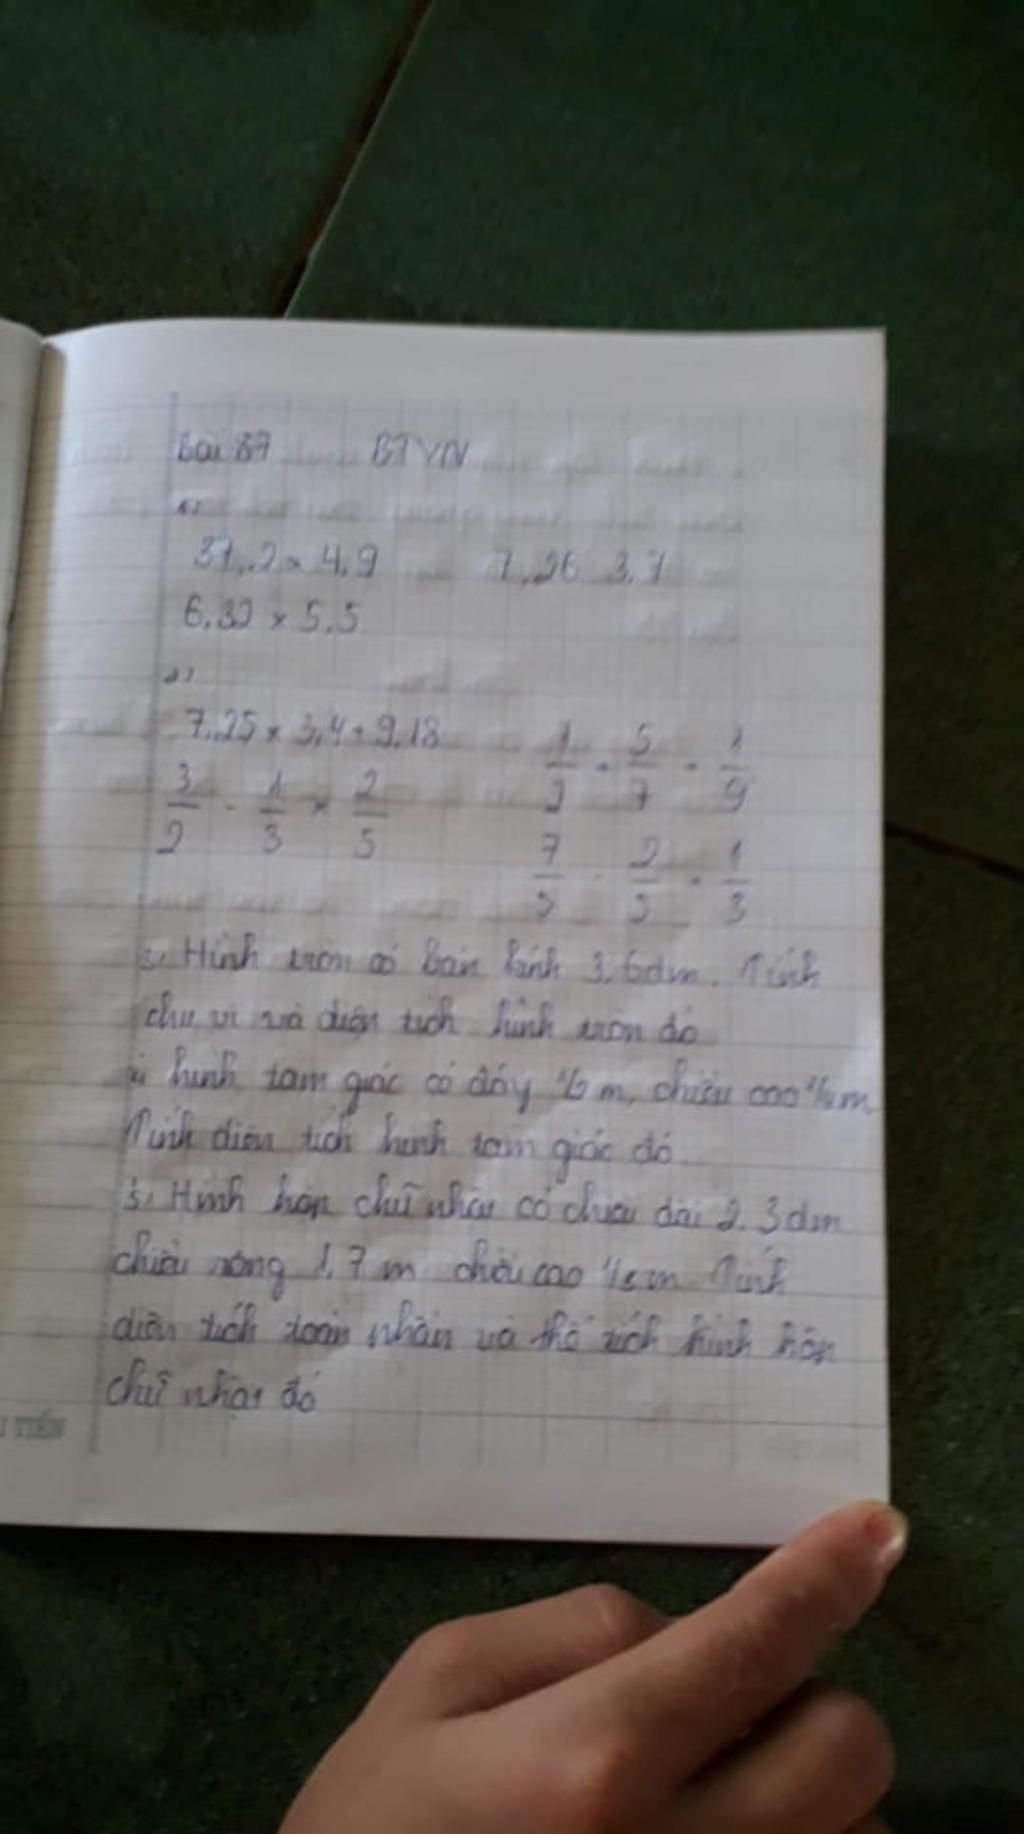 Bài 87 BTVN
1,
37,2 × 4,9 7,26 3,7
6,32 × 5,5
2,
7,25 × 3,4 + 9,18
3/2 - 1/3 × 2/5
3, Hình tròn có bán kính 3,6dm. Tính
chu vi và diện tích hình tròn đó
4, hình tam giác có đáy m, chiều cao m.
Tính diện tích hình tam giác đó
5, Hình hộp chữ nhật có chiều dài 2,3dm
chiều rộng 1,7 m chiều cao m Tính
diện tích toàn phần và thể tích hình hộp
chữ nhật đó
TIẾN